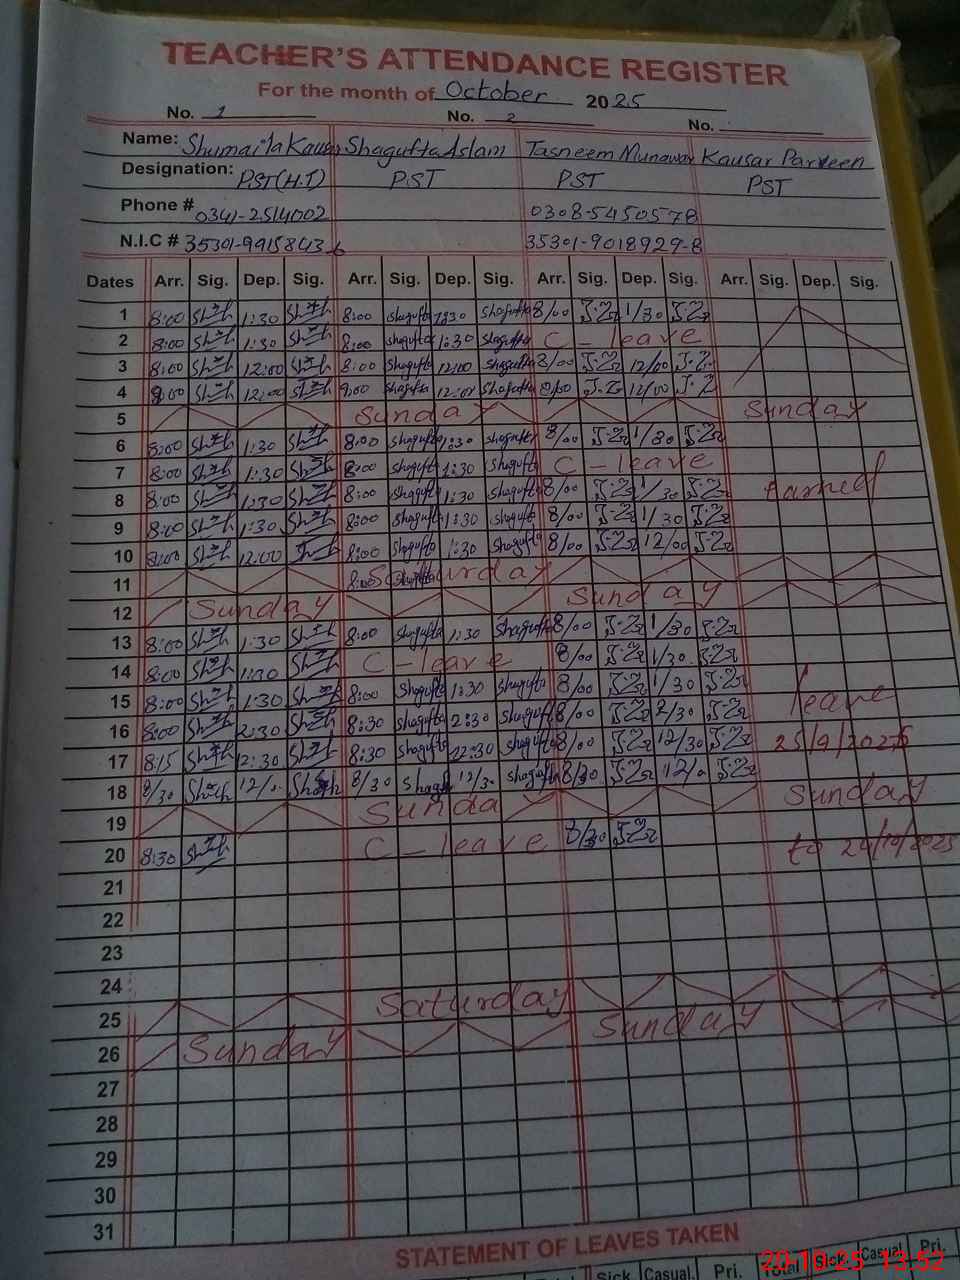 TEACHER'S ATTENDANCE REGISTER
For the month of October 2025
No. 1 No. 2 No.
Name: Shumaila Kausar Shagufta Aslam Tasneem Munawar Kausar Parveen
Designation: PST(H.T) PST PST PST
Phone # 0341-2514002 0308-5450578
N.I.C # 35301-9915843-6 35301-9018929-8
Dates Arr. Sig. Dep. Sig. Arr. Sig. Dep. Sig. Arr. Sig. Dep. Sig. Arr. Sig. Dep. Sig.
1 8:00 1:30 8:00 Shagufta 1:30 Shagufta 8/00 1/30
2 8:00 1:30 8:00 Shagufta 1:30 Shagufta C - leave
3 8:00 12:00 8:00 Shagufta 12:00 Shagufta 8/00 12/00
4 12:00 Shagufta 12:00 Shagufta 8/00 12/00
5 Sunday Sunday
6 8:00 1:30 8:00 Shagufta 1:30 Shagufta 8/00 1/30
7 8:00 1:30 8:00 Shagufta 1:30 Shagufta C - leave
8 8:00 1:30 8:00 Shagufta 1:30 Shagufta 8/00 1/30 earned
9 8:00 1:30 8:00 Shagufta 1:30 Shagufta 8/00 1/30
10 8:00 12:00 8:00 Shagufta 1:30 Shagufta 8/00 12/00
11 Saturday
12 Sunday Sunday
13 8:00 1:30 8:00 Shagufta 1:30 Shagufta 8/00 1/30
14 8:00 1:30 C - leave 8/00 1/30
15 8:00 1:30 8:00 Shagufta 1:30 Shagufta 8/00 1/30 leave
16 8:00 2:30 8:30 Shagufta 2:30 Shagufta 8/00 2/30
17 8:15 12:30 8:30 Shagufta 12:30 Shagufta 8/00 12/30 25/9/2025
18 8/30 8/30 12/30 Shagufta 8/30
19 Sunday Sunday
20 8:30 C - leave 8/30 to 24/10/2025
21
22
23
24
25 Saturday
26 Sunday Sunday
27
28
29
30
31
STATEMENT OF LEAVES TAKEN
Sick Casual. Pri. Total Sick Casual Pri.
20-10-25 13:52